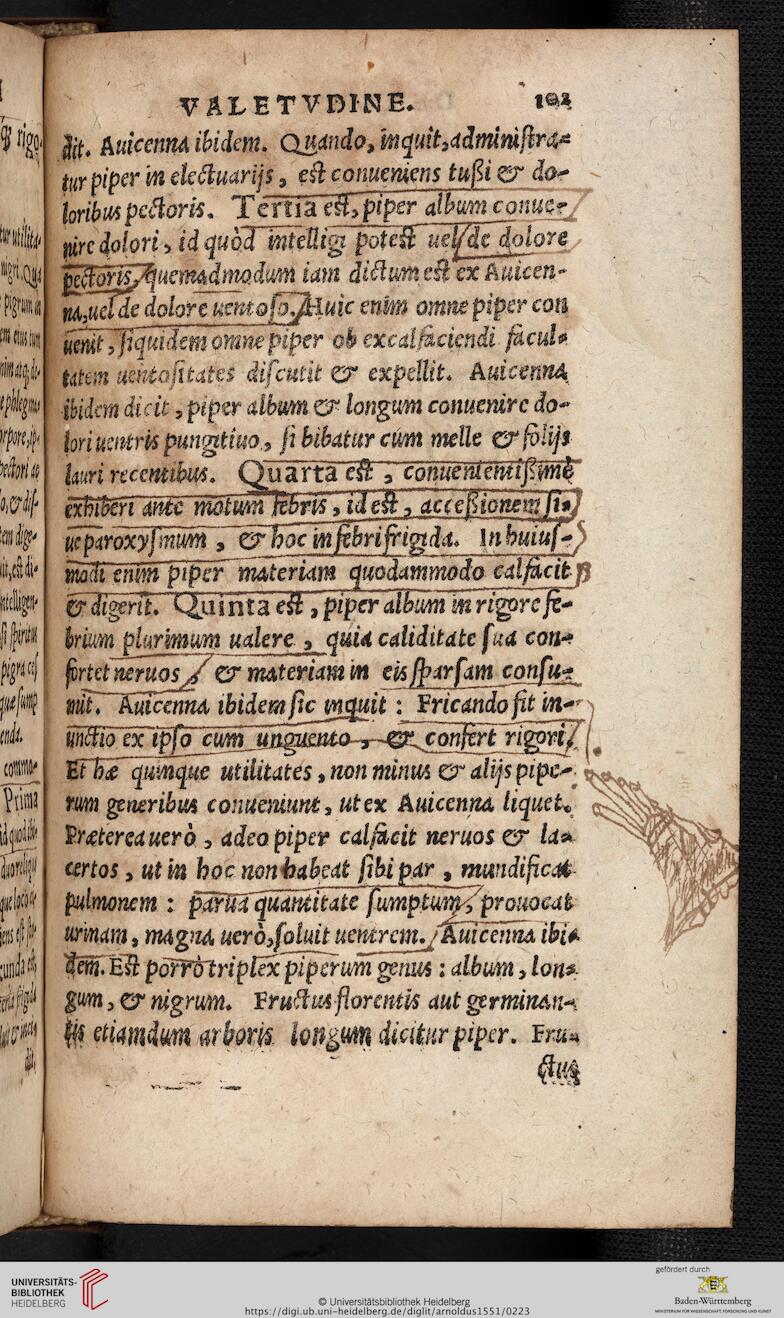 VALETVDINE. 102
dit. Auicenna ibidem. Quando, inquit, administra-
tur piper in electuarijs, est conueniens tußi & do-
loribus pectoris. Tertia est, piper album conue-
nire dolori, id quòd intelligi potest uel de dolore
pectoris, quemadmodum iam dictum est ex Auicen-
na, uel de dolore uentoso. Huic enim omne piper con
uenit, siquidem omne piper ob excalfaciendi facul-
tatem uentositates discutit & expellit. Auicenna
ibidem dicit, piper album & longum conuenire do-
lori uentris pungitiuo, si bibatur cùm melle & folijs
lauri recentibus. Quarta est, conuenientißimè
exhiberi ante motum febris, id est, acceßionem si-
ue paroxysmum, & hoc in febri frigida. In huius-
modi enim piper materiam quodammodo calfacit
& digerit. Quinta est, piper album in rigore fe-
brium plurimum ualere, quia caliditate sua con-
fortet neruos, & materiam in eis sparsam consu-
mit. Auicenna ibidem sic inquit: Fricando fit in-
unctio ex ipso cum unguento, & confert rigori.
Et hæ quinque utilitates, non minus & alijs pipe-
rum generibus conueniunt, ut ex Auicenna liquet.
Præterea uerò, adeo piper calfacit neruos & la-
certos, ut in hoc non habeat sibi par, mundificat
pulmonem: parua quantitate sumptum, prouocat
urinam, magna uerò, soluit uentrem. Auicenna ibi-
dem. Est porrò triplex piperum genus: album, lon-
gum, & nigrum. Fructus florentis aut germinan-
tis etiamdum arboris longum dicitur piper. Fru-
ctus
UNIVERSITÄTS-
BIBLIOTHEK
HEIDELBERG
© Universitätsbibliothek Heidelberg
https://digi.ub.uni-heidelberg.de/diglit/arnoldus1551/0223
gefördert durch
Baden-Württemberg
MINISTERIUM FÜR WISSENSCHAFT, FORSCHUNG UND KUNST